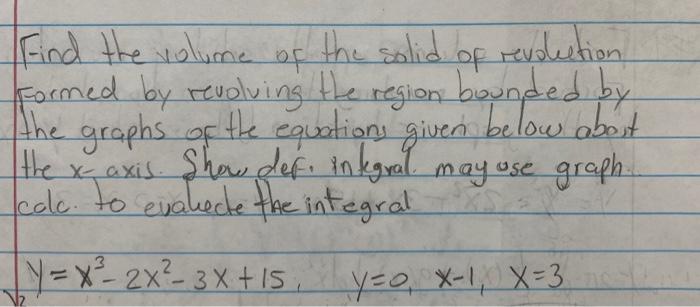 Find the volume of the solid of revolution
formed by revolving the region bounded by
the graphs of the equations given below about
the x-axis. Show def. integral. may use graph.
calc. to evaluate the integral
y = x³ - 2x² - 3x + 15, y=0, x-1, x=3